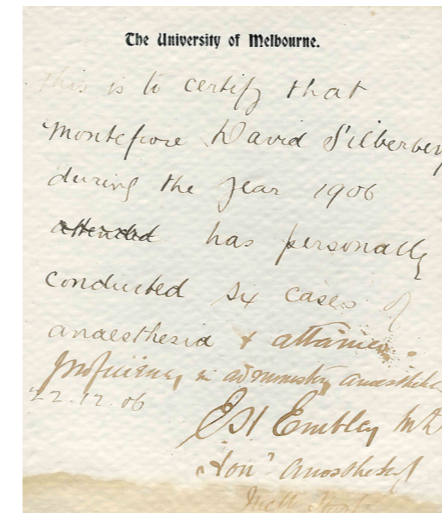 The University of Melbourne.
This is to certify that
Montefiore David Silberberg
during the year 1906
attended has personally
conducted six cases of
anaesthesia & attained
proficiency in administering anaesthetics
22.12.06
E H Embley MD
Hon Anaesthetist